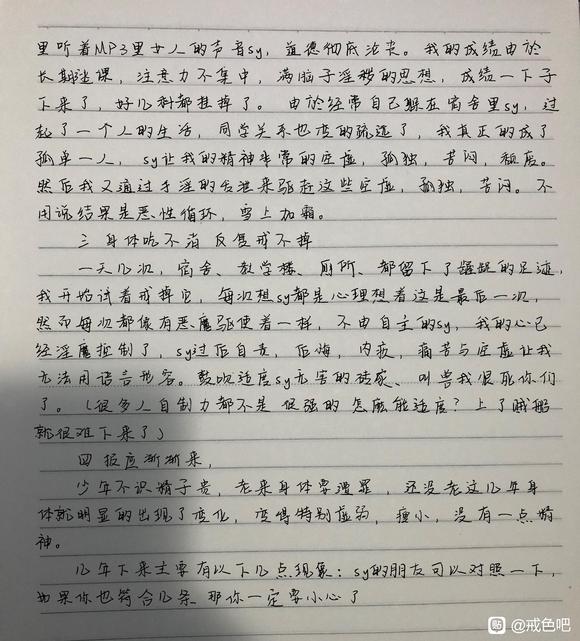 里听着MP3里女人的声音sy，道德彻底沦丧。我的成绩由於
长期逃课，注意力不集中，满脑子淫秽的思想，成绩一下子
下来了，好几科都挂掉了。由於经常自己躲在宿舍里sy，过
起了一个人的生活，同学关系也变的疏远了，我真正的成了
孤单一人，sy让我的精神非常的空虚，孤独，苦闷，颓废。
然后我又通过手淫的方法来驱赶这些空虚，孤独，苦闷。不
用说结果是恶性循环，雪上加霜。
三 身体吃不消 反复戒不掉
一天几次，宿舍、教学楼、厕所、都留下了龌龊的足迹，
我开始试着戒掉它，每次想sy都是心理想着这是最后一次，
然而每次都像有恶魔驱使着一样，不由自主的sy，我的心已
经淫魔控制了，sy过后自责，后悔，内疚，痛苦与空虚让我
无法用语言形容。鼓吹适度sy无害的砖家、叫兽我恨死你们
了。（很多人自制力都不是很强的 怎么能适度？上了贼船
就很难下来了）
四 报应渐渐来，
少年不识精子贵，老来身体要遭罪，还没老这几年身
体就明显的出现了变化，变得特别虚弱，瘦小，没有一点精
神。
几年下来主要有以下几点现象：sy的朋友可以对照一下，
如果你也符合几条 那你一定要小心了
贴 @戒色吧